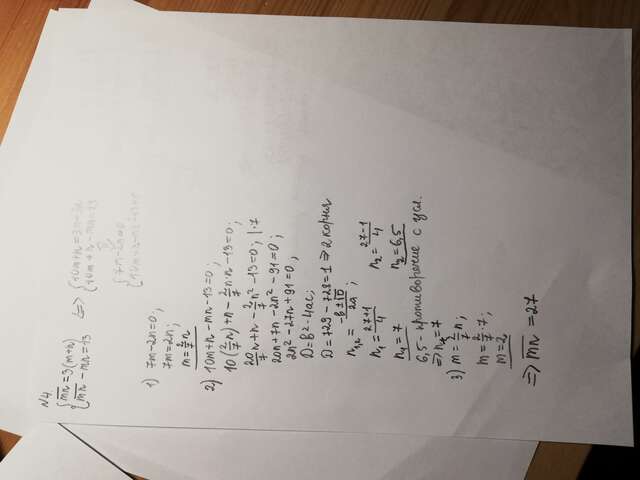 N4
{m̅n̅ = 3(m+n)
{m̅n̅ - mn = 13
=> {10m+n = 3m+3n
{10m+n - mn = 13
{7m-2n=0
1) 7m-2n=0;
7m=2n;
m=2/7n
2) 10m+n-mn-13=0;
10(2/7n)+n-2/7n·n-13=0;
20/7n+n-2/7n²-13=0; |·7
20n+7n-2n²-91=0;
2n²-27n+91=0;
D=b²-4ac;
D=729-728=1 => 2 корня
n₁,₂ = -b±√D/2a;
n₁ = 27+1/4
n₂ = 27-1/4
n₁=7
n₂=6,5
6,5 - противоречие с усл.
=> n=7
3) m=2/7n;
m=2/7·7;
m=2
=> m̅n̅ = 27